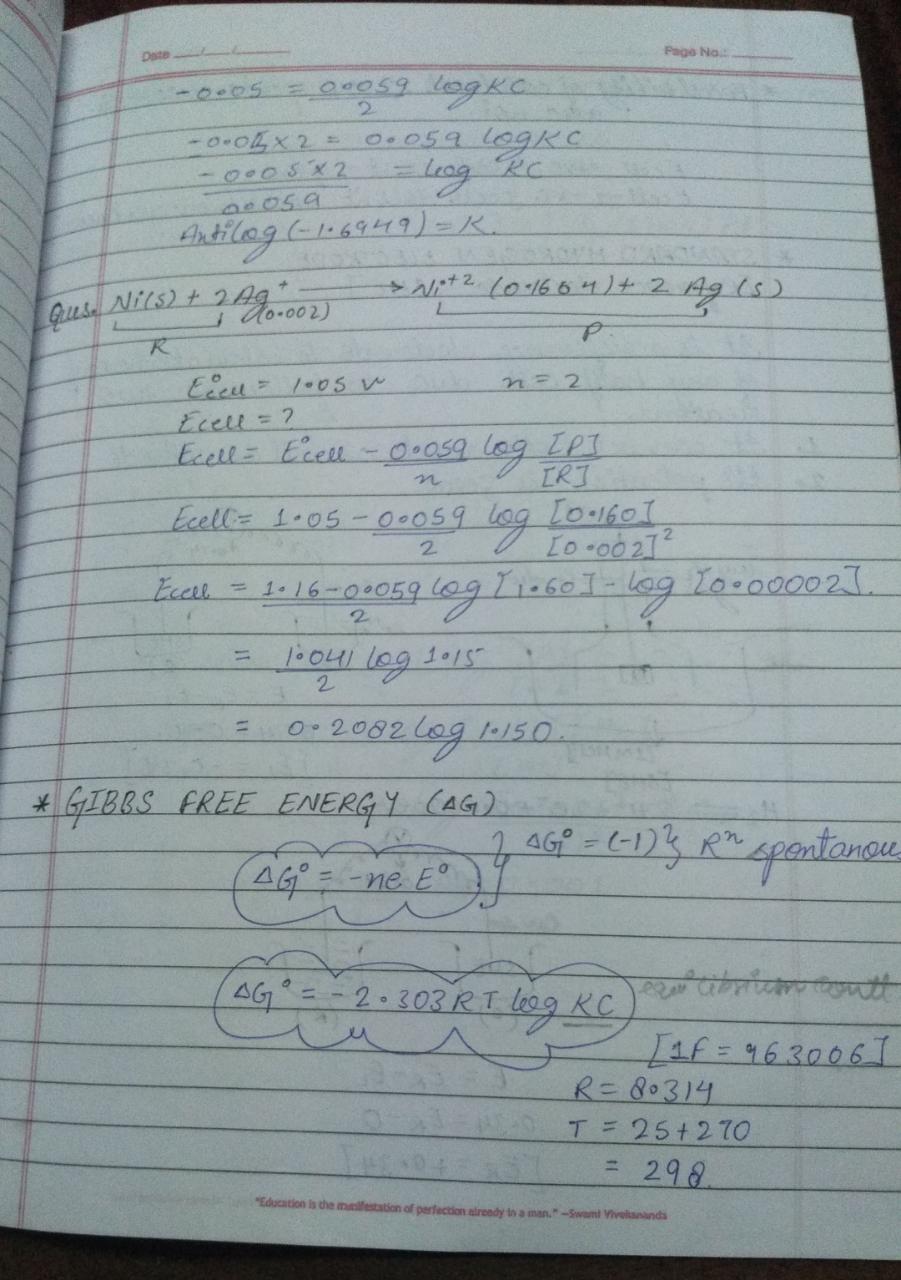 Date __/__/____ Page No.: ______
-0.05 = 0.059/2 log KC
-0.05 × 2 = 0.059 log KC
-0.05 × 2/0.059 = log KC
Antilog (-1.6949) = K.
Ques. Ni(s) + 2 Ag⁺ (0.002) → Ni⁺² (0.160M) + 2 Ag (s)
R P
E°cell = 1.05 v n = 2
Ecell = ?
Ecell = E°cell - 0.059/n log [P]/[R]
Ecell = 1.05 - 0.059/2 log [0.160]/[0.002]²
Ecell = 1.16-0.059/2 log [1.60] - log [0.00002].
= 1.041/2 log 1.15
= 0.2082 log 1.150.
* GIBBS FREE ENERGY (ΔG)
ΔG° = (-1) } Rⁿ spontanou
ΔG° = -ne E°
ΔG° = - 2.303 RT log KC
[1F = 963006]
R = 8.314
T = 25 + 270
= 298.
"Education is the manifestation of perfection already in a man." –Swami Vivekananda